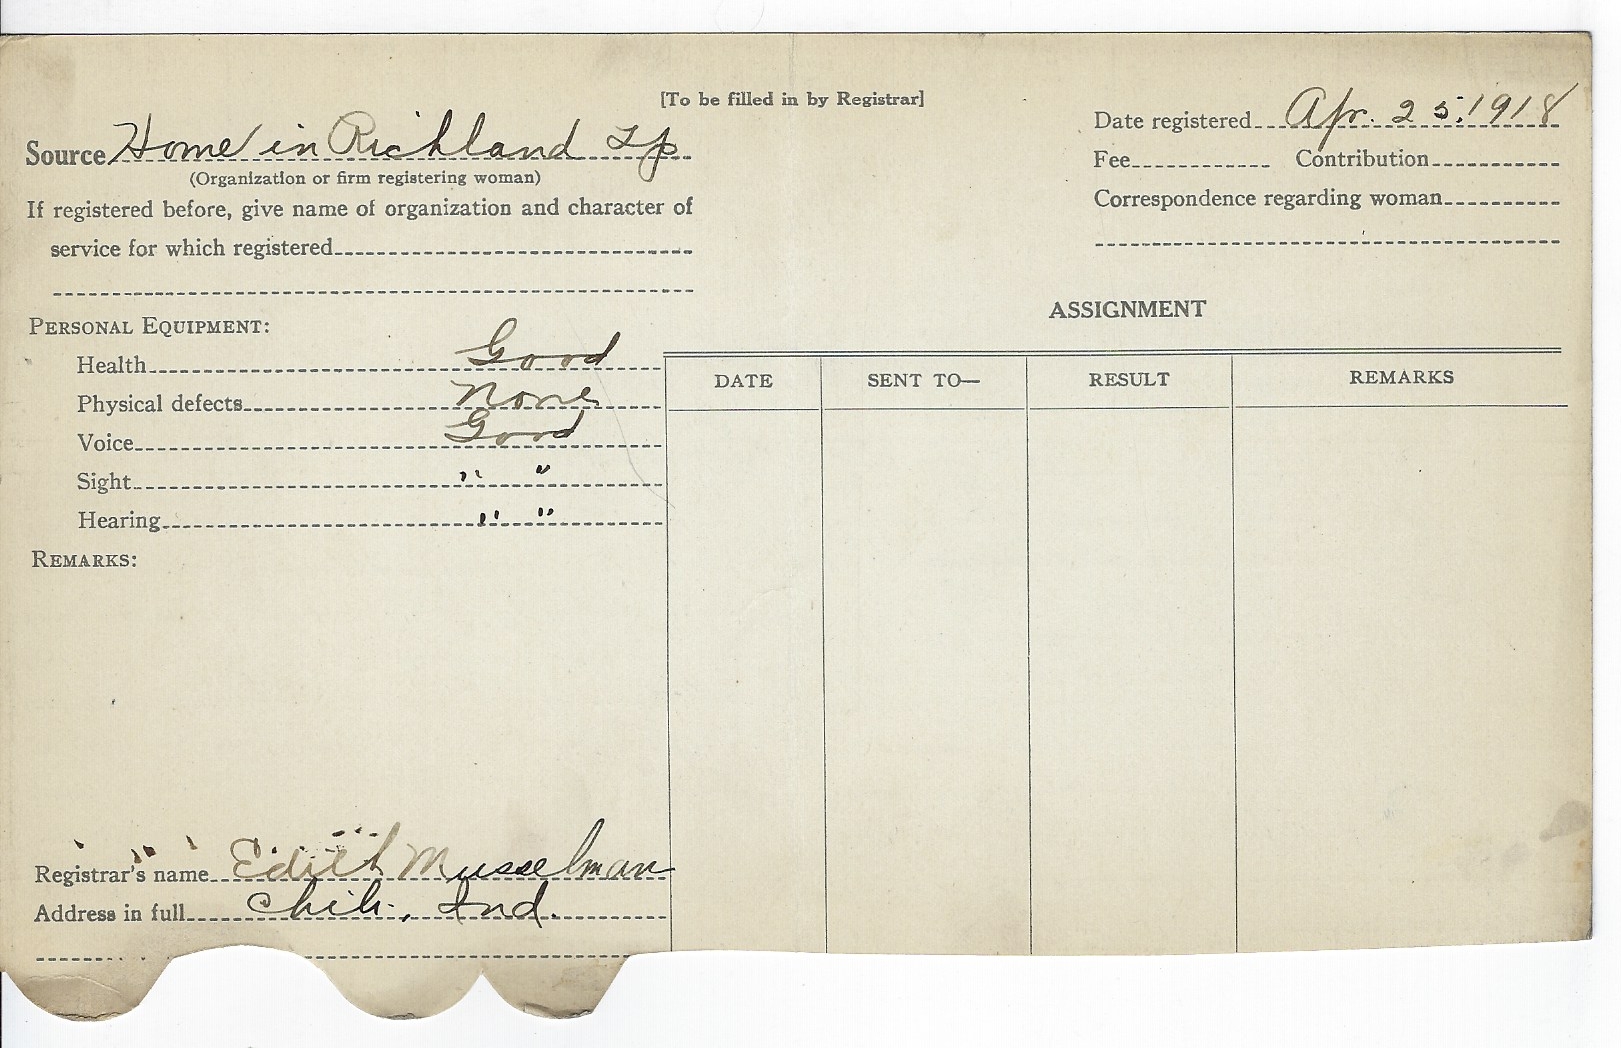 [To be filled in by Registrar]
Source Home in Richland Tp.
(Organization or firm registering woman)
If registered before, give name of organization and character of
service for which registered
Date registered Apr. 25, 1918
Fee Contribution
Correspondence regarding woman
PERSONAL EQUIPMENT:
Health Good
Physical defects None
Voice Good
Sight " "
Hearing " "
REMARKS:
Registrar's name Edith Musselman
Address in full Chili, Ind.
ASSIGNMENT
DATE SENT TO— RESULT REMARKS